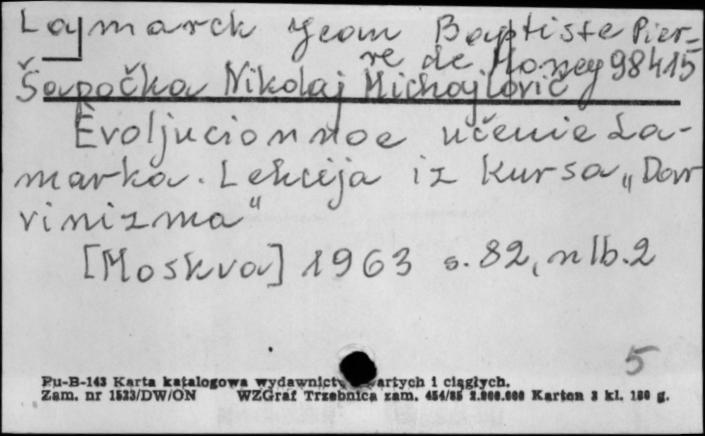 Lamarck Jean Baptiste Pier-
re de Money 98415
Šapočka Nikolaj Michajlovič
Evoljucionnoe učenie La-
marka. Lekcija iz kursa „Dar
vinizma“
[Moskva] 1963 s. 82, nlb. 2
5
Pu-B-143 Karta katalogowa wydawnictw zwartych i ciągłych.
Zam. nr 1523/DW/ON WZGraf Trzebnica zam. 454/85 2.000.000 Karton 3 kl. 180 g.